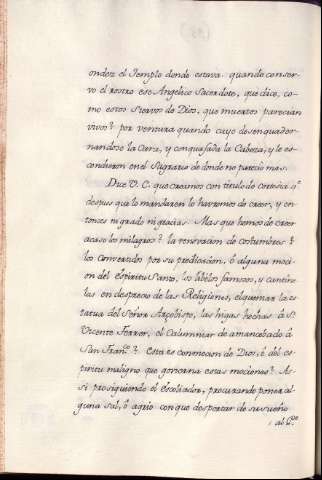 ondez el Templo donde estava. quando conser-
vo el rostro ese Angelico Sacerdote, que dice, co-
mo estos Siervos de Dios, que muertos parecian
vivos? por ventura quando cayo desenquader-
nandose la Caxa, y con quasada la Cabeza, y le es-
condieron en el Sagrario de donde no pareciò mas.
Dice V. C. que creamos con titulo de cortesia q.e
despues que lo mandaren lo haremos de creer, y en-
tonces ni grado ni gracias. Mas que hemos de creer
acaso los milagros? la renovacion de costumbres?
los Convertidos por su predicacion, ò alguna moci-
on del Espiritu Santo, los libelos famosos, y cantine-
las en desprecio de las Religiones, el quemar la es-
tatua del Señor Arzobispo, las higas hechas à S.
Vicente Ferrer, el Calumniar de amancebado à
San Fran.co? Esta es conmocion de Dios, ò del es-
piritu maligno que governa estas mociones? As-
si prosiguiendo el Escoliador, procurando poner al-
guna sal, ò agrio con que despertar de su sueño
al C.o